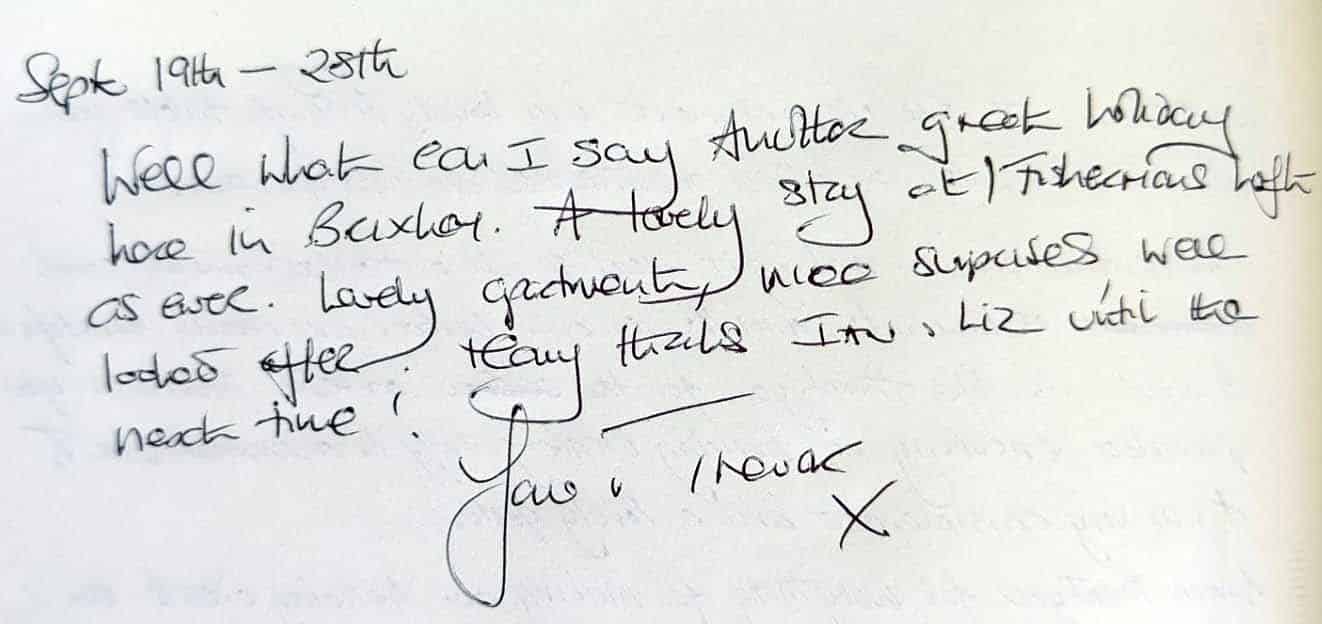 Sept 19th – 28th
Well what can I say Another great holiday
here in Brixham. A lovely stay at Fisherman's Loft
as ever. Lovely apartment, nice surprises well
looked after. Many thanks Ian, Liz until the
next time!
Trevor
X